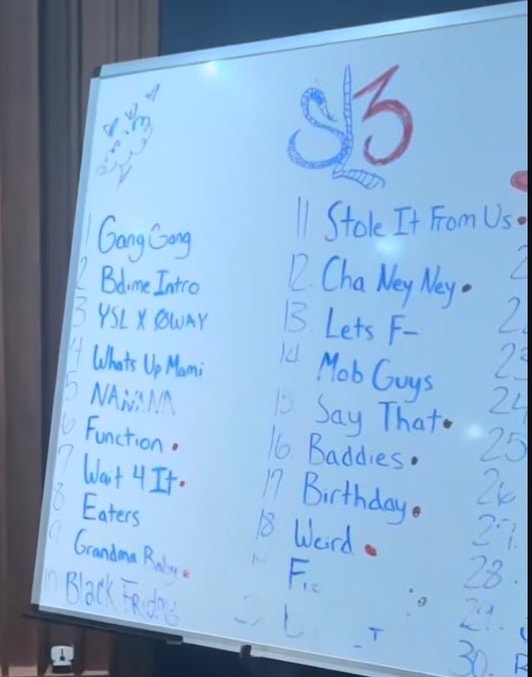 SL3
1 Gang Gang
2 Bdime Intro
3 YSL X ØWAY
4 Whats Up Mami
5 NANANA
6 Function.
7 Wait 4 It.
8 Eaters
9 Grandma Baby.
10 Black Friday
11 Stole It From Us.
12. Cha Ney Ney.
13. Lets F-
14 Mob Guys
15 Say That.
16 Baddies.
17 Birthday.
18 Weird.
23
24
25
26
27.
28.
29.
30.